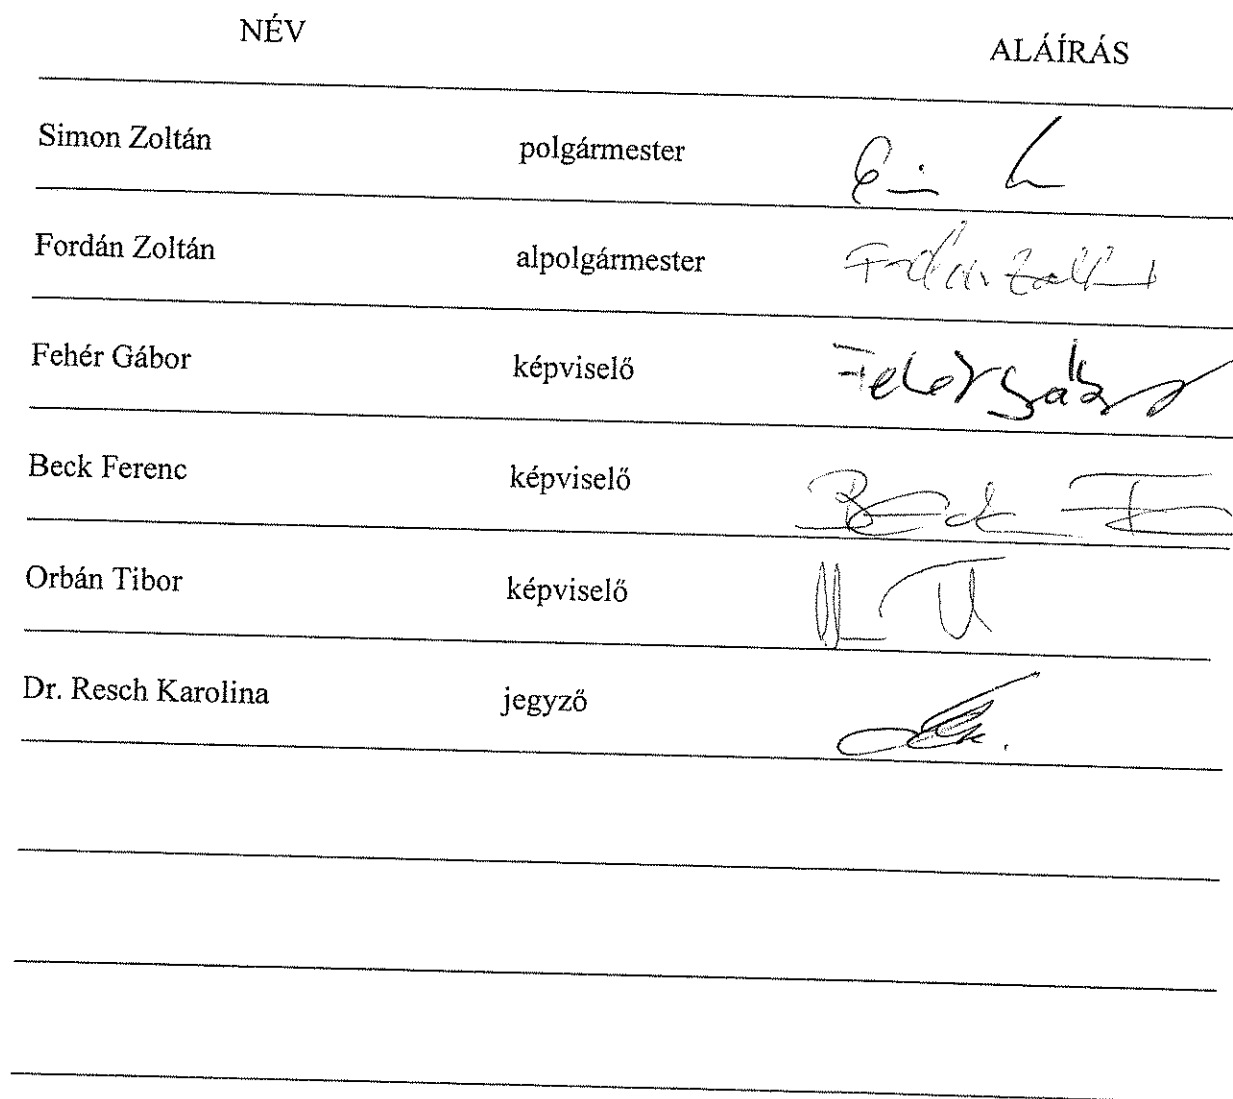 NÉV ALÁÍRÁS
Simon Zoltán polgármester
Fordán Zoltán alpolgármester Fordán Zoltán
Fehér Gábor képviselő Fehér Gábor
Beck Ferenc képviselő Beck F
Orbán Tibor képviselő
Dr. Resch Karolina jegyző